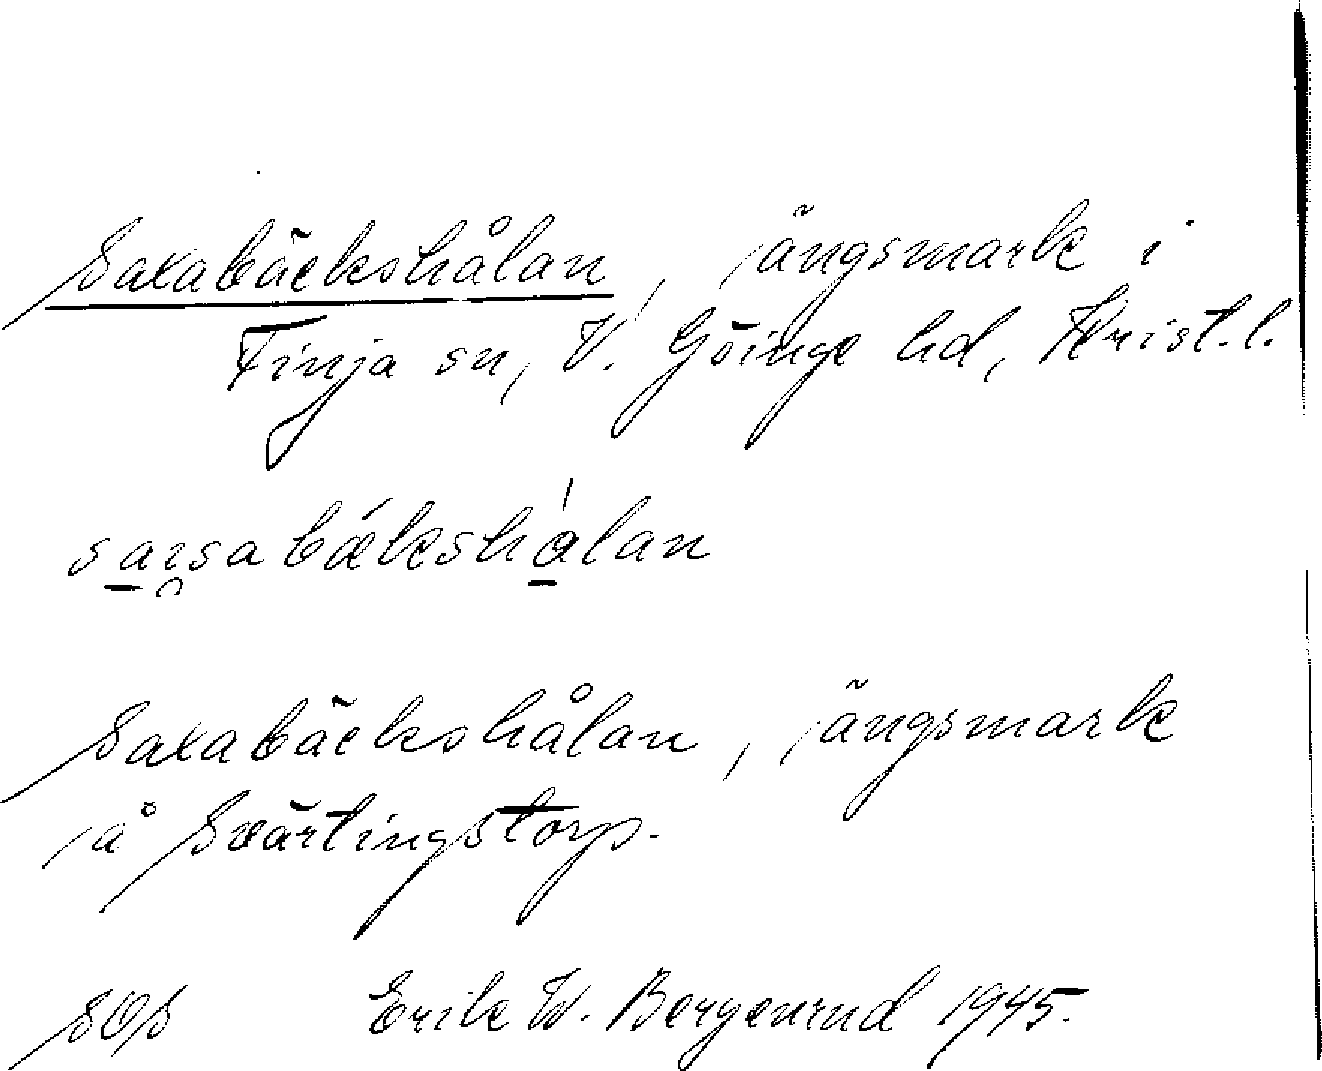 Saxabäckshålan, ängsmark i
Finja sn, V. Göinge hd, Krist.l.
Saxabäckshålan, ängsmark
på Svärtingstorp.
SOS Erik W. Bergenrud 1945.